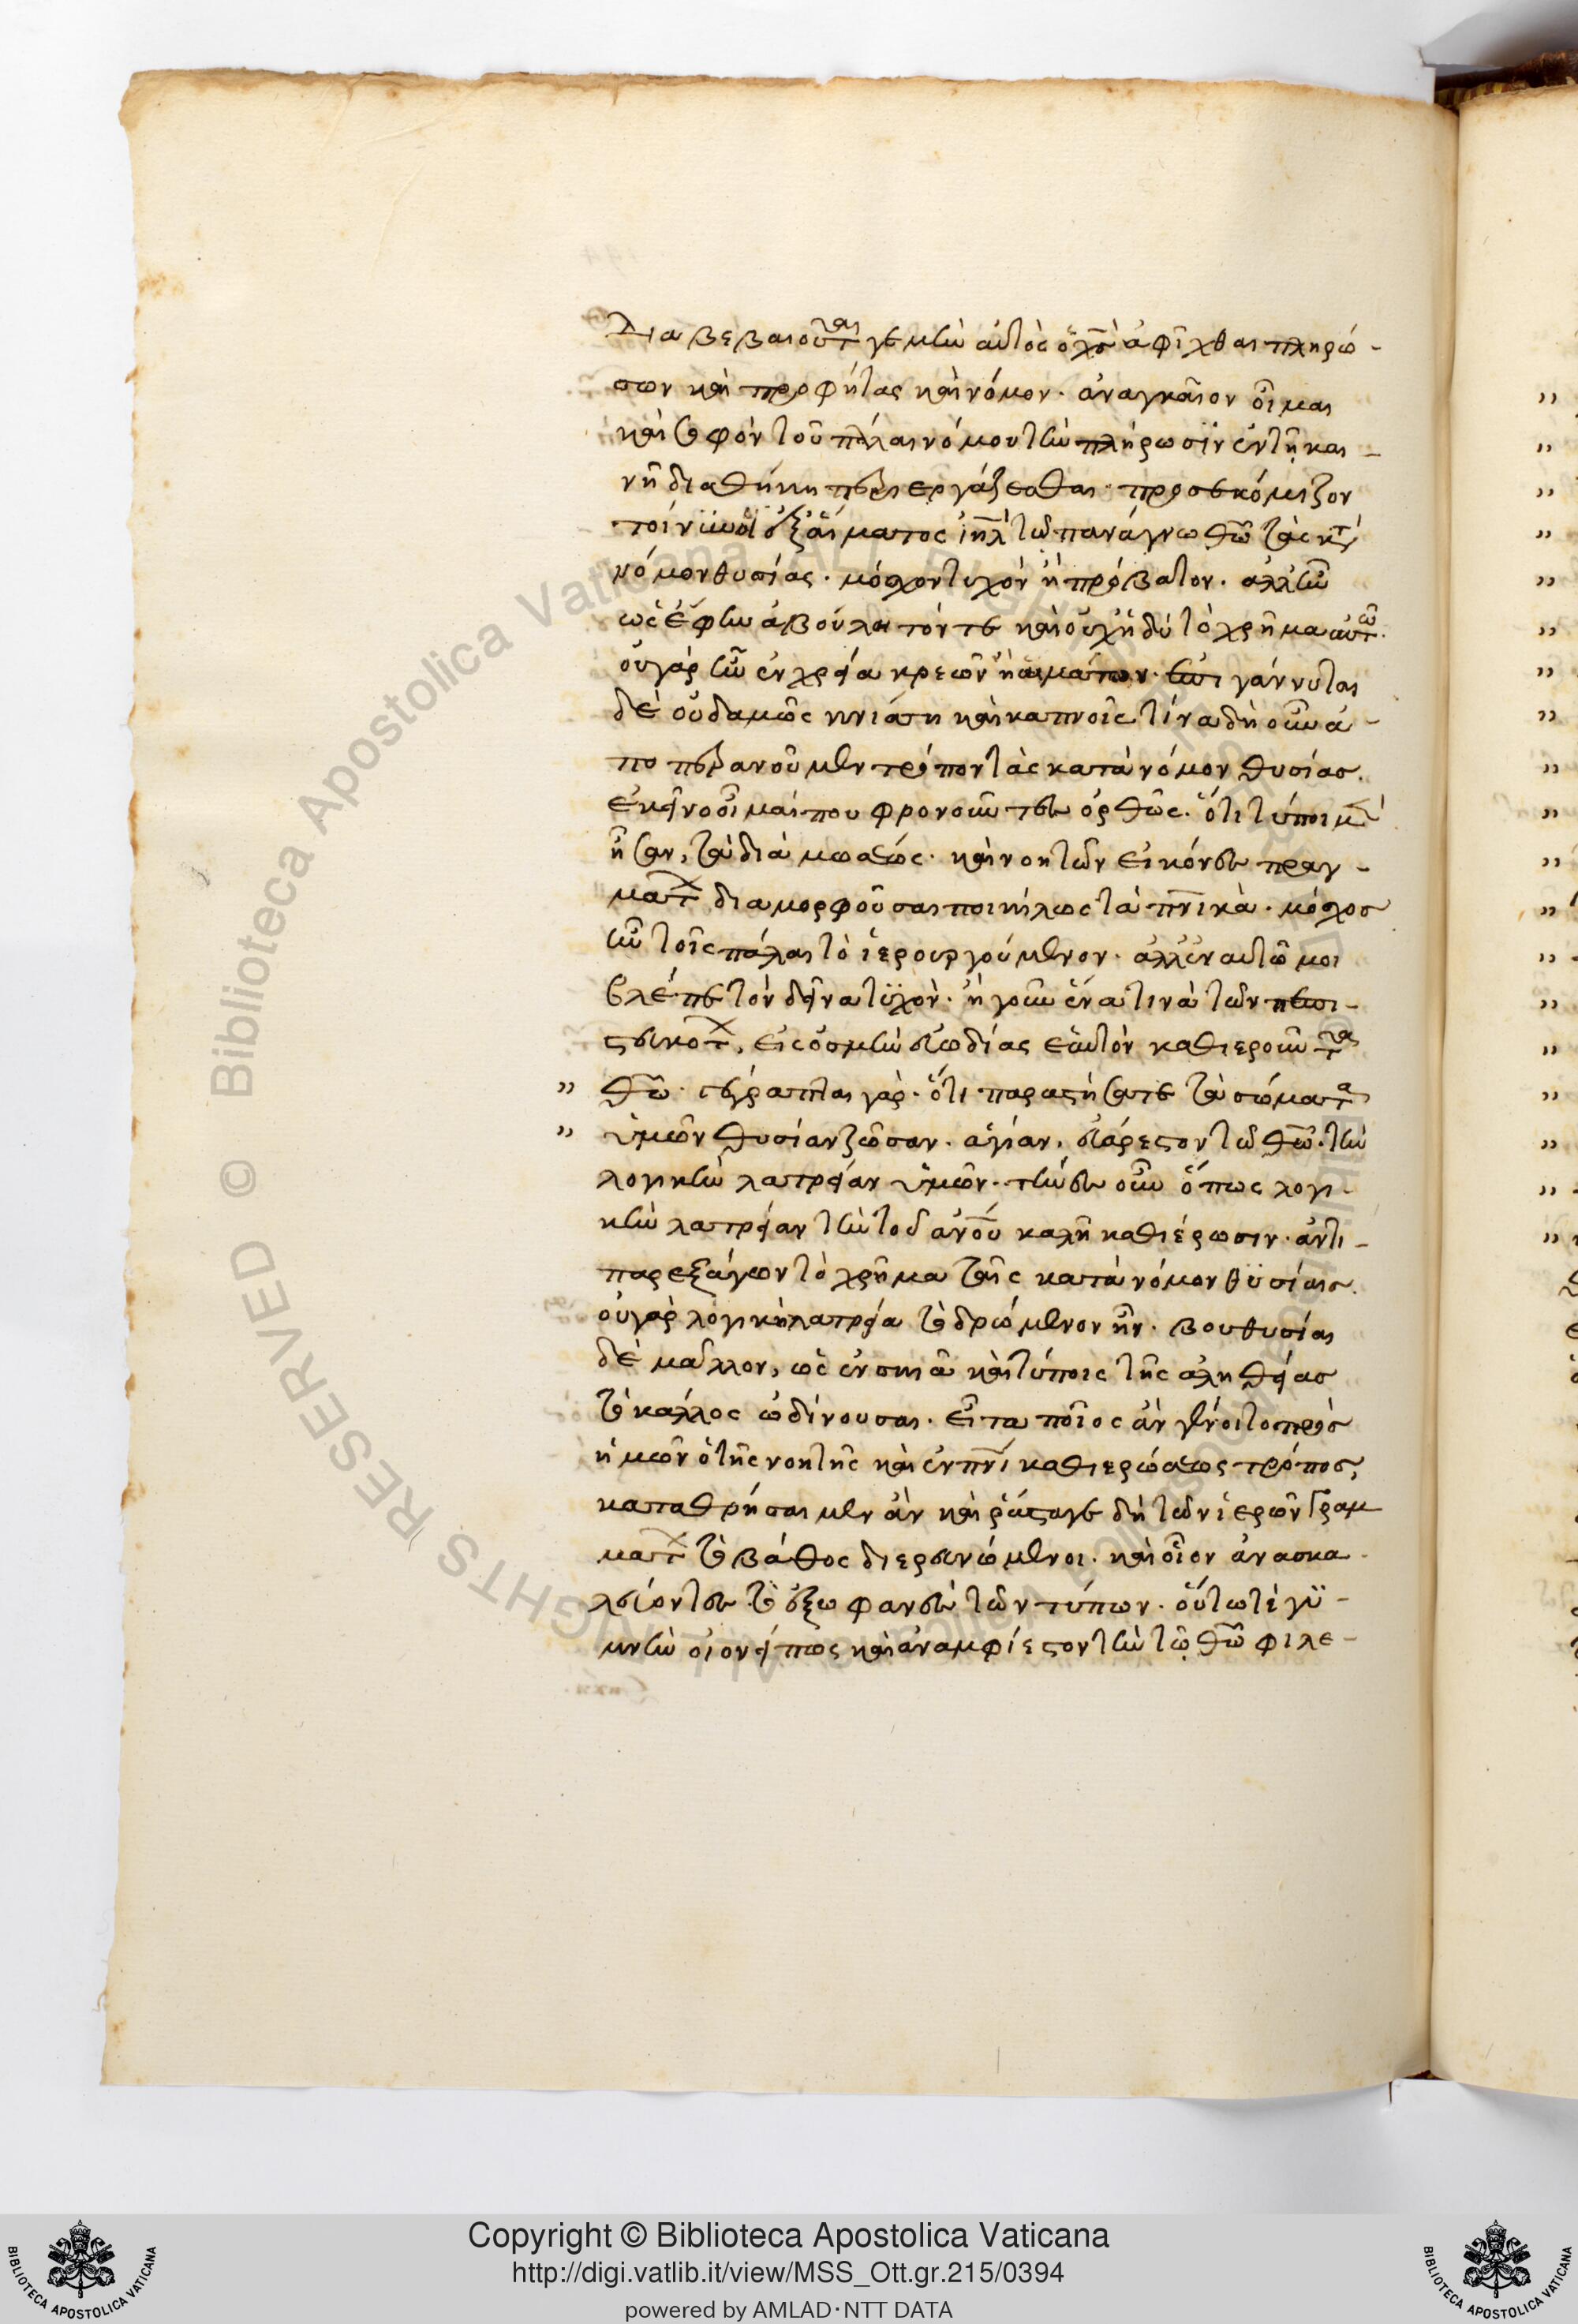 Διαβεβαιοῦται γε μὴν αὐτὸς ὁ χς ἀφῖχθαι πληρώ-
σων καὶ προφήτας καὶ νόμον. ἀναγκαῖον οἶμαι
καὶ σοφὸν τοῦ πάλαι νόμου τὴν πλήρωσιν ἐν τῇ και-
νῇ διαθήκῃ περιεργάζεσθαι. προσεκόμιζον
τοίνυν οἱ ἐξ αἵματος ιηλ τῷ πανάγνῳ θω τὰς κατὰ
νόμον θυσίας. μόσχον τυχὸν ἢ πρόβατον. ἀλλ' ἦν
ὡς ἔφην ἀβούλητόν τε καὶ οὐχ ἡδὺ τὸ χρῆμα αὐτῶ.
οὐ γὰρ ἦν ἐν χρεία κρεῶν ἢ αἱμάτων. γάννυται
δὲ οὐδαμῶς κνισάτη καὶ καπνοῖς τίνα δὴ οὖν ἀ-
ποπεραίνουμεν τρόπον τὰς κατὰ νόμον θυσίας.
ἐκεῖνο οἶμαί που φρονοῦντες ὀρθῶς. ὅτι τύποι μὲν
ἦσαν, τὰ διὰ μωσέως. καὶ νοητῶν εἰκόνες πραγ-
μάτων διαμορφοῦσαι ποικίλως τὰ πνικὰ. μόσχος
ἦν τοῖς πάλαι τὸ ἱερουργούμενον. ἀλλ' ἐν αὐτῶ μοι
βλέπε τὸν δεῖνα τυχὸν. ἢ γοῦν ἕνα τινὰ τῶν πεπι-
στευκότων, εἰς ὀσμὴν εὐωδίας ἑαυτὸν καθιεροῦντα
θω. γέγραπται γὰρ. ὅτι παραστήσατε τὰ σώματα
ὑμῶν θυσίαν ζῶσαν. ἁγίαν, εὐάρεστον τῷ θω. τὴν
λογικὴν λατρείαν ὑμῶν. οὖν ὅπως λογι-
κὴν λατρείαν τὴν τοῦ ανου καλεῖ καθιέρωσιν. ἀντι-
παρεξάγων τὸ χρῆμα ταῖς κατὰ νόμον θυσίαις.
οὐ γὰρ λογικὴ λατρεία τὸ δρώμενον ἦν. βουθυσίαι
δὲ μᾶλλον, ὡς ἐν σκιᾷ καὶ τύποις τῆς ἀληθείας
τὸ κάλλος ὠδίνουσαι. εἶτα ποῖος ἂν γένοιτο πρὸς
ἡμῶν ὁ τῆς νοητῆς καὶ ἐν πνι καθιερώσεως τρόπος,
καταθρήσαιμεν ἂν καὶ ῥᾷστά γε δὴ τῶν ἱερῶν γραμ
μάτων τὸ βάθος διερευνώμενοι. καὶ οἷον ἀνασκα-
λεύοντες τὸ ἔξω φανὲν τῶν τύπων. οὕτω τὲ γυ-
μνὴν οἱονεί πως καὶ ἀναμφίεστον τὴν τῷ θω φιλε-
Copyright © Biblioteca Apostolica Vaticana
http://digi.vatlib.it/view/MSS_Ott.gr.215/0394
powered by AMLAD·NTT DATA